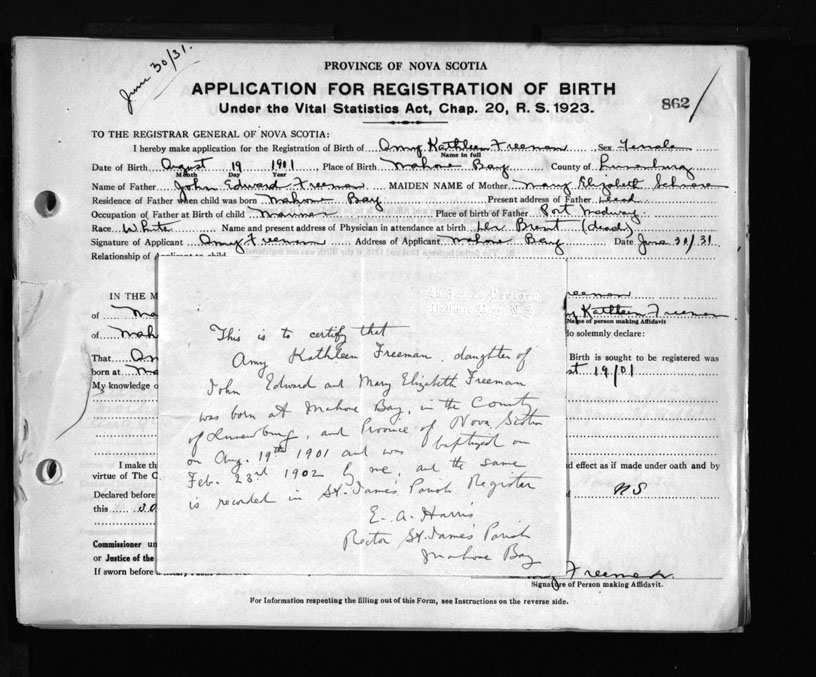 June 30/31.
PROVINCE OF NOVA SCOTIA
APPLICATION FOR REGISTRATION OF BIRTH
Under the Vital Statistics Act, Chap. 20, R. S. 1923.
862
TO THE REGISTRAR GENERAL OF NOVA SCOTIA:
I hereby make application for the Registration of Birth of Amy Kathleen Freeman Sex Female
Name in full
Date of Birth August 19 1901, Place of Birth Mahone Bay County of Lunenburg
Month Day Year
Name of Father John Edward Freeman MAIDEN NAME of Mother Mary Elizabeth
Residence of Father when child was born Mahone Bay Present address of Father dead
Occupation of Father at Birth of child Mariner Place of birth of Father Port Medway
Race White Name and present address of Physician in attendance at birth Dr (dead)
Signature of Applicant Amy Freeman Address of Applicant Mahone Bay Date June 30/31
Relationship of Applicant to child
IN THE M reeman
of Ma Kathleen Freeman
Name of person making Affidavit
of Mah do solemnly declare:
That Am Birth is sought to be registered was
born at Ma st 19/01
My knowledge o
This is to certify that
Amy Kathleen Freeman, daughter of
John Edward and Mary Elizabeth Freeman
was born at Mahone Bay, in the County
of Lunenburg, and Province of Nova Scotia
on Aug. 19th 1901 and was baptized on
Feb. 23rd 1902 by me, and the same
is recorded in St. James' Parish Register
E. A. Harris
Rector St. James' Parish
Mahone Bay
I make th d effect as if made under oath and by
virtue of The C
Declared before NS
this 30
Commissioner un
or Justice of the
If sworn before
Freeman.
Signature of Person making Affidavit.
For Information respecting the filling out of this Form, see Instructions on the reverse side.